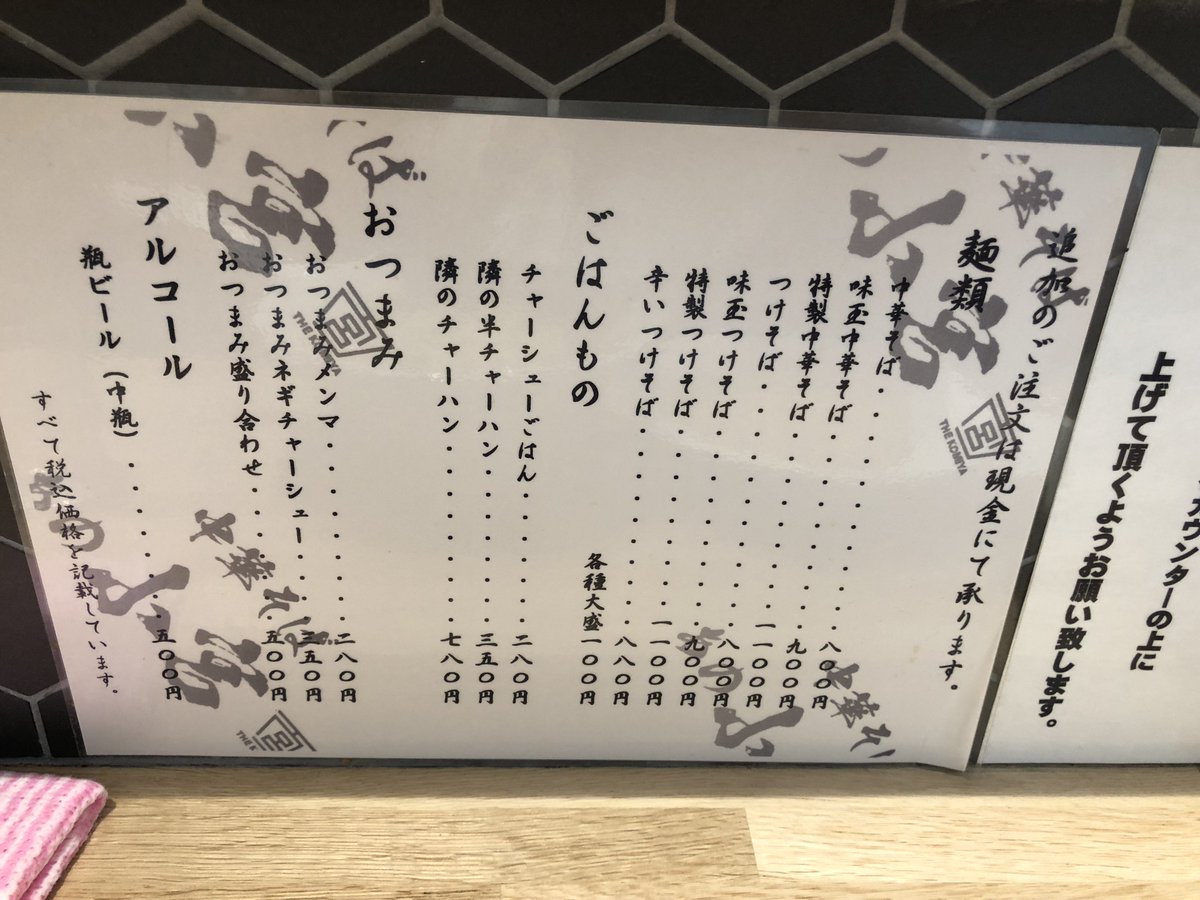 追加のご注文は現金にて承ります。
麺類
中華そば・・・・・・・・・・八〇〇円
味玉中華そば・・・・・・・・九〇〇円
特製中華そば・・・・・・・一一〇〇円
つけそば・・・・・・・・・・八〇〇円
味玉つけそば・・・・・・・・九〇〇円
特製つけそば・・・・・・・一一〇〇円
辛いつけそば・・・・・・・・八八〇円
各種大盛一〇〇円
ごはんもの
チャーシューごはん・・・・・二八〇円
隣の半チャーハン・・・・・・三五〇円
隣のチャーハン・・・・・・・七八〇円
おつまみ
おつまみメンマ・・・・・・・二八〇円
おつまみネギチャーシュー・・・三五〇円
おつまみ盛り合わせ・・・・・五〇〇円
アルコール
瓶ビール(中瓶)・・・・・・・五〇〇円
すべて税込価格を記載しています。
THE KOMIYA
カウンターの上に
上げて頂くようお願い致します。